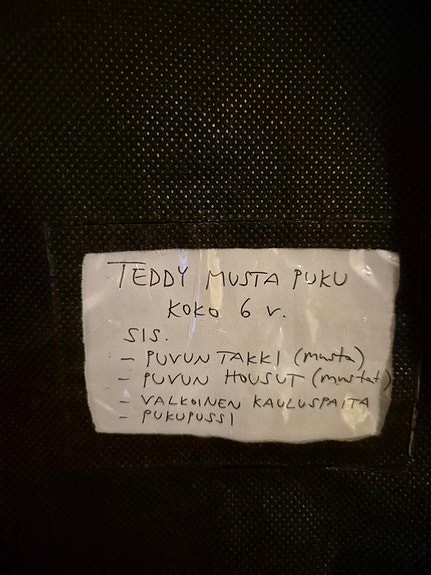 TEDDY MUSTA PUKU
KOKO 6 v.
SIS.
- PUVUN TAKKI (musta)
- PUVUN HOUSUT (mustat)
- VALKOINEN KAULUSPAITA
- PUKUPUSSI